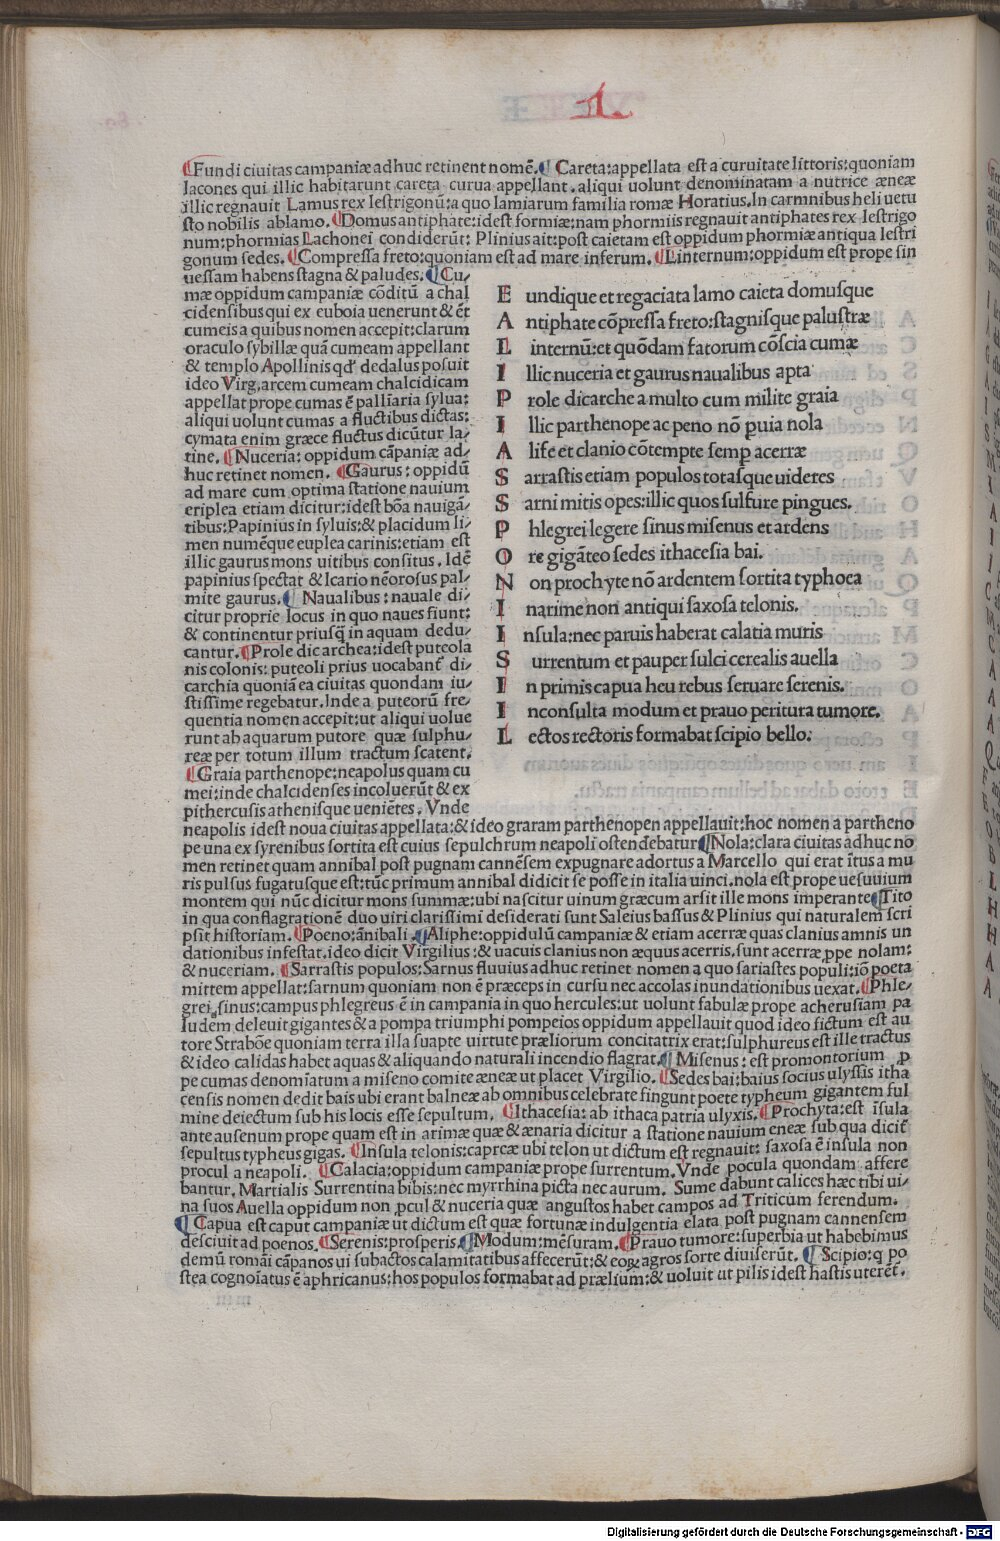 1.
¶Fundi ciuitas campaniæ adhuc retinent nomē.¶ Careta:appellata est a curuitate littoris:quoniam
lacones qui illic habitarunt careta curua appellant.aliqui uolunt denominatam a nutrice æneæ
illic regnauit Lamus rex lestrigonū:a quo lamiarum familia romæ Horatius.In carmnibus heli uetu
sto nobilis ablamo.¶Domus antiphate:idest formiæ:nam phormiis regnauit antiphates rex lestrigo
num:phormias Lachonei condiderūt: Plinius ait:post caietam est oppidum phormiæ antiqua lestri
gonum sedes.¶Compressa freto:quoniam est ad mare inferum.¶Linternum:oppidum est prope sin
uessam habens stagna & paludes.¶Cu⸗
mæ oppidum campaniæ cōditū a chal
cidensibus qui ex euboia uenerunt & ēt
cumeis a quibus nomen accepit:clarum
oraculo sybillæ quā cumeam appellant
& templo Apollinis qđ dedalus posuit
ideo Virg.arcem cumeam chalcidicam
appellat prope cumas ē pallīaria sylua:
aliqui uolunt cumas a fluctibus dictas:
cymata enim græce fluctus dicūtur la⸗
tine.¶Nuceria: oppidum cāpaniæ ad⸗
huc retinet nomen.¶Gaurus: oppidū
ad mare cum optima statione nauium
eriplea etiam dicitur:idest bōa nauigā⸗
tibus:Papinius in syluis:& placidum li⸗
men numēque euplea carinis:etiam est
illic gaurus mons uitibus consitus. Idē
papinius spectat & Icario nēorosus pal⸗
mite gaurus.¶ Naualibus: nauale di⸗
citur proprie locus in quo naues fiunt:
& continentur priusq̄ in aquam dedu⸗
cantur.¶Prole dic archea:idest puteola
nis colonis: puteoli prius uocabant̄ di⸗
carchia quoniā ea ciuitas quondam iu⸗
stissime regebatur.Inde a puteorū fre⸗
quentia nomen accepit:ut aliqui uolue
runt ab aquarum putore quæ sulphu⸗
reæ per totum illum tractum scatent.
¶Graia parthenope:neapolus quam cu
mei:inde chalcidenses incoluerūt & ex
pithercusis athenisque ueniētes. Vnde
E undique et regaciata lamo caieta domusque
A ntiphate cōpressa freto:stagnisque palustræ
L internū:et quōdam fatorum cōscia cumæ
I llic nuceria et gaurus naualibus apta
P role dicarche a multo cum milite graia
I llic parthenope ac peno nō puia nola
A life et clanio cōtempte semp acerræ
S arrastis etiam populos totasque uideres
S arni mitis opes:illic quos sulfure pingues.
P hlegrei legere sinus misenus et ardens
O re gigāteo sedes ithacesia bai.
N on prochyte nō ardentem sortita typhoea
I narime non antiqui saxosa telonis.
I nsula:nec paruis haberat calatia muris
S urrentum et pauper sulci cerealis auella
I n primis capua heu rebus seruare serenis.
I nconsulta modum et prauo peritura tumore.
L ectos rectoris formabat scipio bello.
neapolis idest noua ciuitas appellata:& ideo graram parthenopen appellauit:hoc nomen a partheno
pe una ex syrenibus sortita est cuius sepulchrum neapoli ostendebatur¶Nola:clara ciuitas adhuc no
men retinet quam annibal post pugnam cannēsem expugnare adortus a Marcello qui erat ītus a mu
ris pulsus fugatusque est:tūc primum annibal didicit se posse in italia uinci.nola est prope uesuuium
montem qui nūc dicitur mons summæ:ubi nascitur uinum græcum arsit ille mons imperante¶Tito
in qua conflagrationē duo uiri clarissimi desiderati sunt Saleius bassus & Plinius qui naturalem scri
psit historiam.¶Poeno:ānibali.¶Aliphe:oppidulū campaniæ & etiam acerræ quas clanius amnis un
dationibus infestat.ideo dicit Virgilius:& uacuis clanius non æquus acerris.sunt acerræ ꝓpe nolam:
& nuceriam.¶Sarrastis populos:Sarnus fluuius adhuc retinet nomen a quo sariastes populi:iō poeta
mittem appellat:sarnum quoniam non ē præceps in cursu nec accolas inundationibus uexat.¶Phle⸗
grei sinus:campus phlegreus ē in campania in quo hercules:ut uolunt fabulæ prope acherusiam pa
ludem deleuit gigantes & a pompa triumphi pompeios oppidum appellauit quod ideo fictum est au
tore Strabōe quoniam terra illa suapte uirtute præliorum concitatrix erat:sulphureus est ille tractus
& ideo calidas habet aquas & aliquando naturali incendio flagrat.¶ Misenus: est promontorium ꝓ
pe cumas denomīatum a miseno comite æneæ ut placet Virgilio.¶Sedes bai:baius socius ulyssis itha
censis nomen dedit bais ubi erant balneæ ab omnibus celebrate fingunt poete typheum gigantem ful
mine deiectum sub his locis esse sepultum. ¶Ithacesia: ab ithaca patria ulyxis.¶Prochyta:est īsula
ante ausenum prope quam est in arimæ quæ & ænaria dicitur a statione nauium eneæ sub qua dicit̄
sepultus typheus gigas. ¶Insula telonis:capreæ ubi telon ut dictum est regnauit: saxosa ē insula non
procul a neapoli. ¶Calacia:oppidum campaniæ prope surrentum.Vnde pocula quondam affere
bantur. Martialis Surrentina bibis:nec myrrhina picta nec aurum. Sume dabunt calices hæc tibi ui⸗
na suos Auella oppidum non ꝓcul & nuceria quæ angustos habet campos ad Triticum ferendum.
¶Capua est caput campaniæ ut dictum est quæ fortunæ indulgentia elata post pugnam cannensem
desciuit ad poenos.¶Serenis:prosperis.¶Modum:mēsuram.¶Prauo tumore:superbia ut habebimus
demū romāi cāpanos ui subactos calamitatibus affecerūt:& eoꝝ agros sorte diuiserūt.¶Scipio:q po
stea cognoīatus ē aphricanus:hos populos formabat ad prælium:& uoluit ut pilis idest hastis uterēt̄.
Digitalisierung gefördert durch die Deutsche Forschungsgemeinschaft - DFG